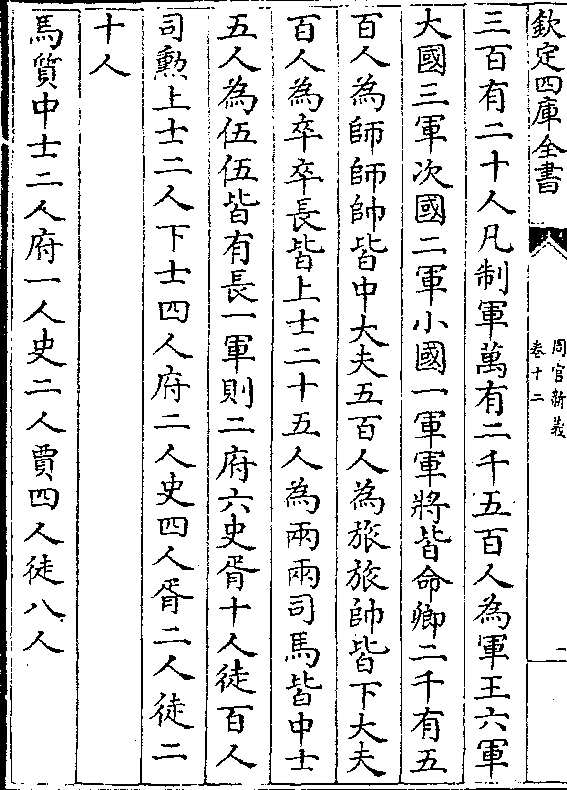 欽定四庫全書
周官新義
卷十二
二
三百有二十人凡制軍萬有二千五百人為軍王六軍
大國三軍次國二軍小國一軍軍將皆命卿二千有五
百人為師師帥皆中大夫五百人為旅旅帥皆下大夫
百人為卒卒長皆上士二十五人為兩兩司馬皆中士
五人為伍伍皆有長一軍則二府六史胥十人徒百人
司勲上士二人下士四人府二人史四人胥二人徒二
十人
馬質中士二人府一人史二人賈四人徒八人